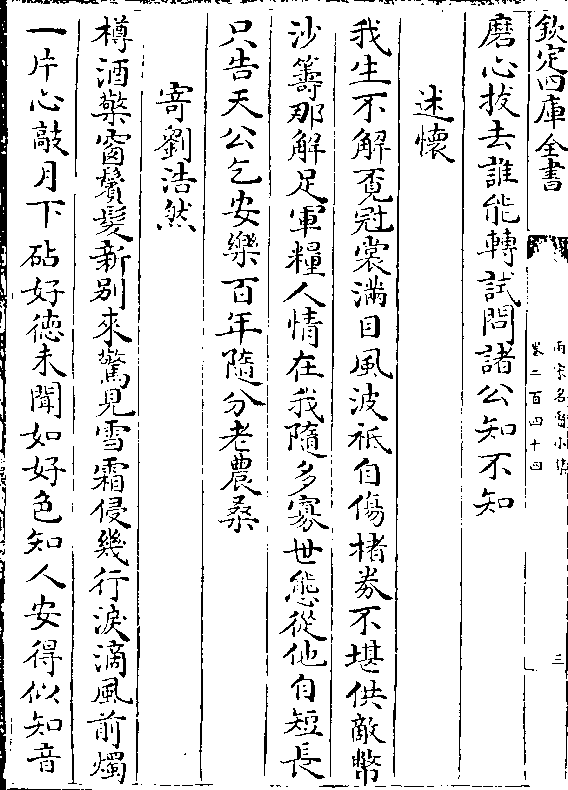 欽定四庫全書
兩宋名賢小集
卷二百四十四
三
磨心拔去誰能轉試問諸公知不知
述懐
我生不解覔冠裳滿目風波祗自傷楮劵不堪供敵幣
沙籌那解足軍糧人情在我隨多寡世態從他自短長
只告天公乞安樂百年隨分老農桑
寄劉浩然
樽酒檠窗鬢髮新别來驚見雪霜侵幾行淚滴風前燭
一片心敲月下砧好徳未聞如好色知人安得似知音